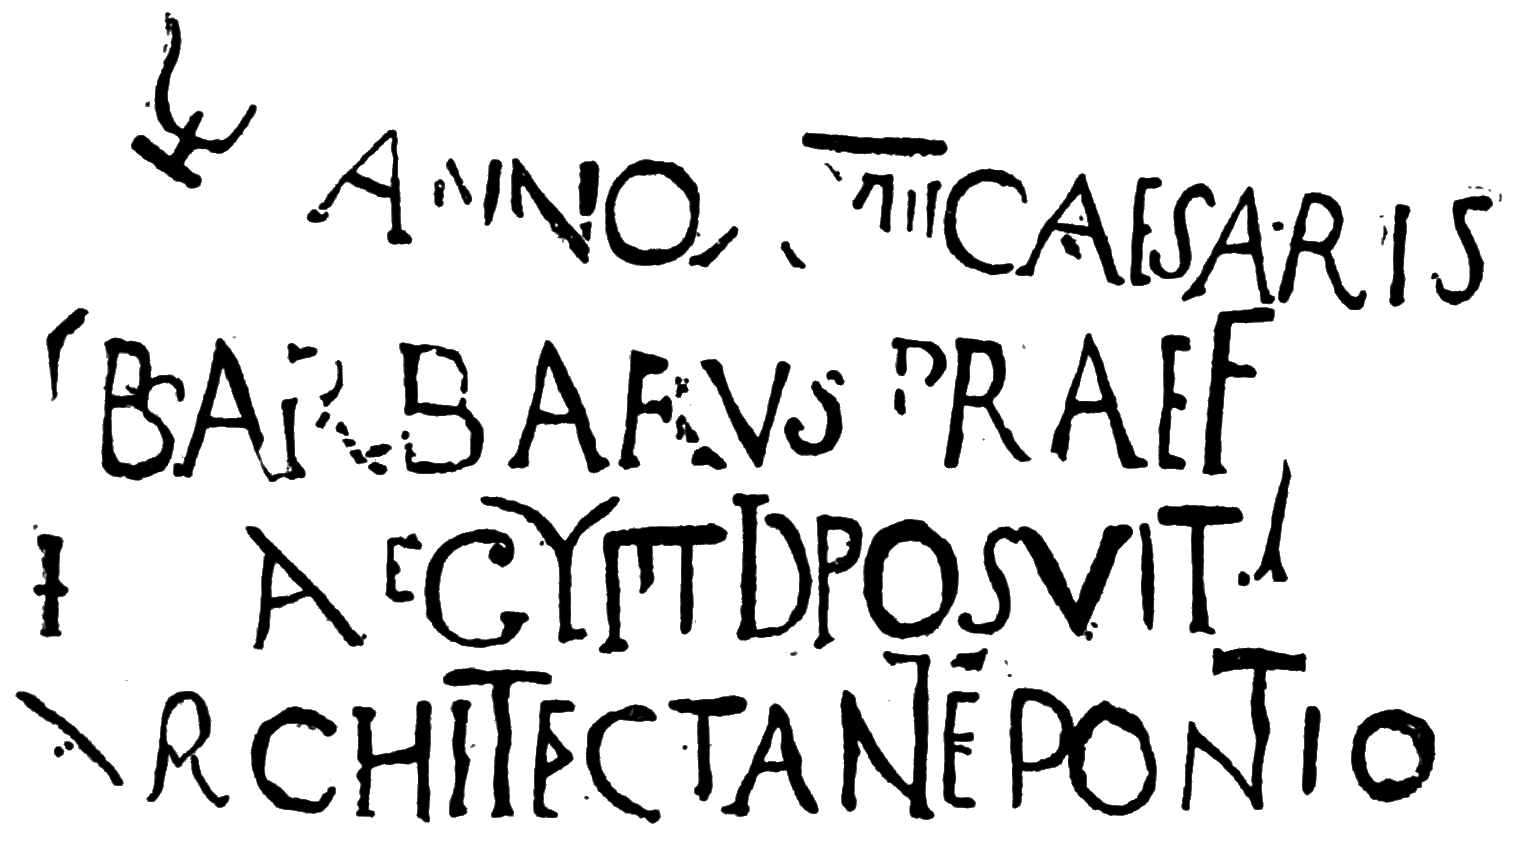 ANNO CAESARIS
BARBARVS PRAEF
AEGYPTI POSVIT
ARCHITECTANTE PONTIO